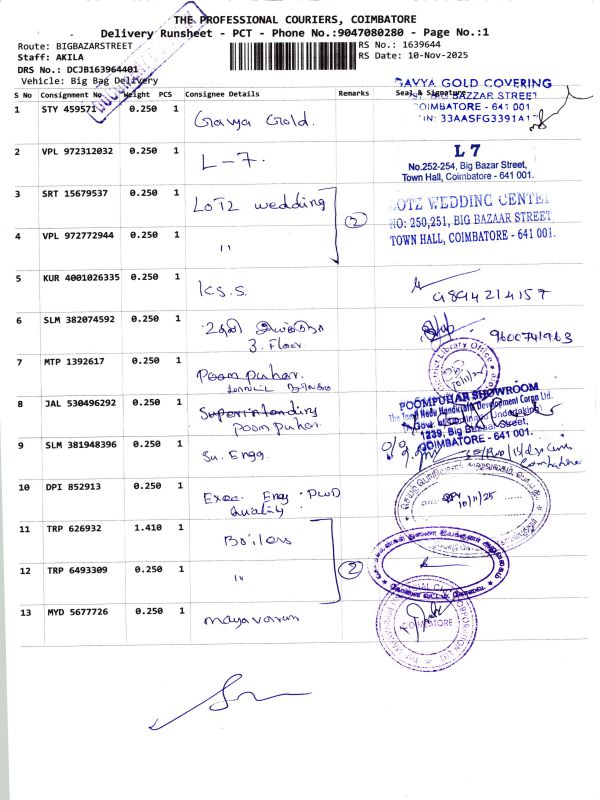 THE PROFESSIONAL COURIERS, COIMBATORE
Delivery Runsheet - PCT - Phone No.:9047080280 - Page No.:1
Route: BIGBAZARSTREET
RS No.: 1639644
Staff: AKILA
RS Date: 10-Nov-2025
DRS No.: DCJB163964401
Vehicle: Big Bag Delivery
S No Consignment No Weight PCS Consignee Details Remarks Seal & Signature
SAVYA GOLD COVERING
BAZZAR STREET
COIMBATORE - 641 001
33AASFG3391A1
1 STY 459571 0.250 1 Gavya Gold.
2 VPL 972312032 0.250 1 L-7.
L 7
No.252-254, Big Bazar Street,
Town Hall, Coimbatore - 641 001.
3 SRT 15679537 0.250 1 LOTZ wedding
2
LOTZ WEDDING CENTER
NO: 250,251, BIG BAZAAR STREET
TOWN HALL, COIMBATORE - 641 001.
4 VPL 972772944 0.250 1 "
5 KUR 4001026335 0.250 1 K.S.S.
9894214157
6 SLM 382074592 0.250 1
3. Floor.
9600741963
7 MTP 1392617 0.250 1 Poompuhar.
Library Office
10/11/25
8 JAL 530496292 0.250 1 Superintending
Poompuhar.
POOMPUHAR SHOWROOM
The Tamil Nadu Handicrafts Development Corpn Ltd.
1239, Big Bazaar Street,
COIMBATORE - 641 001.
9 SLM 381948396 0.250 1 Su. Engg.
Coimbatore
10 DPI 852913 0.250 1 Exec. Eng. PWD
Quality.
10/11/25
11 TRP 626932 1.410 1 Boilers
2
12 TRP 6493309 0.250 1 "
13 MYD 5677726 0.250 1 mayavaram
COIMBATORE